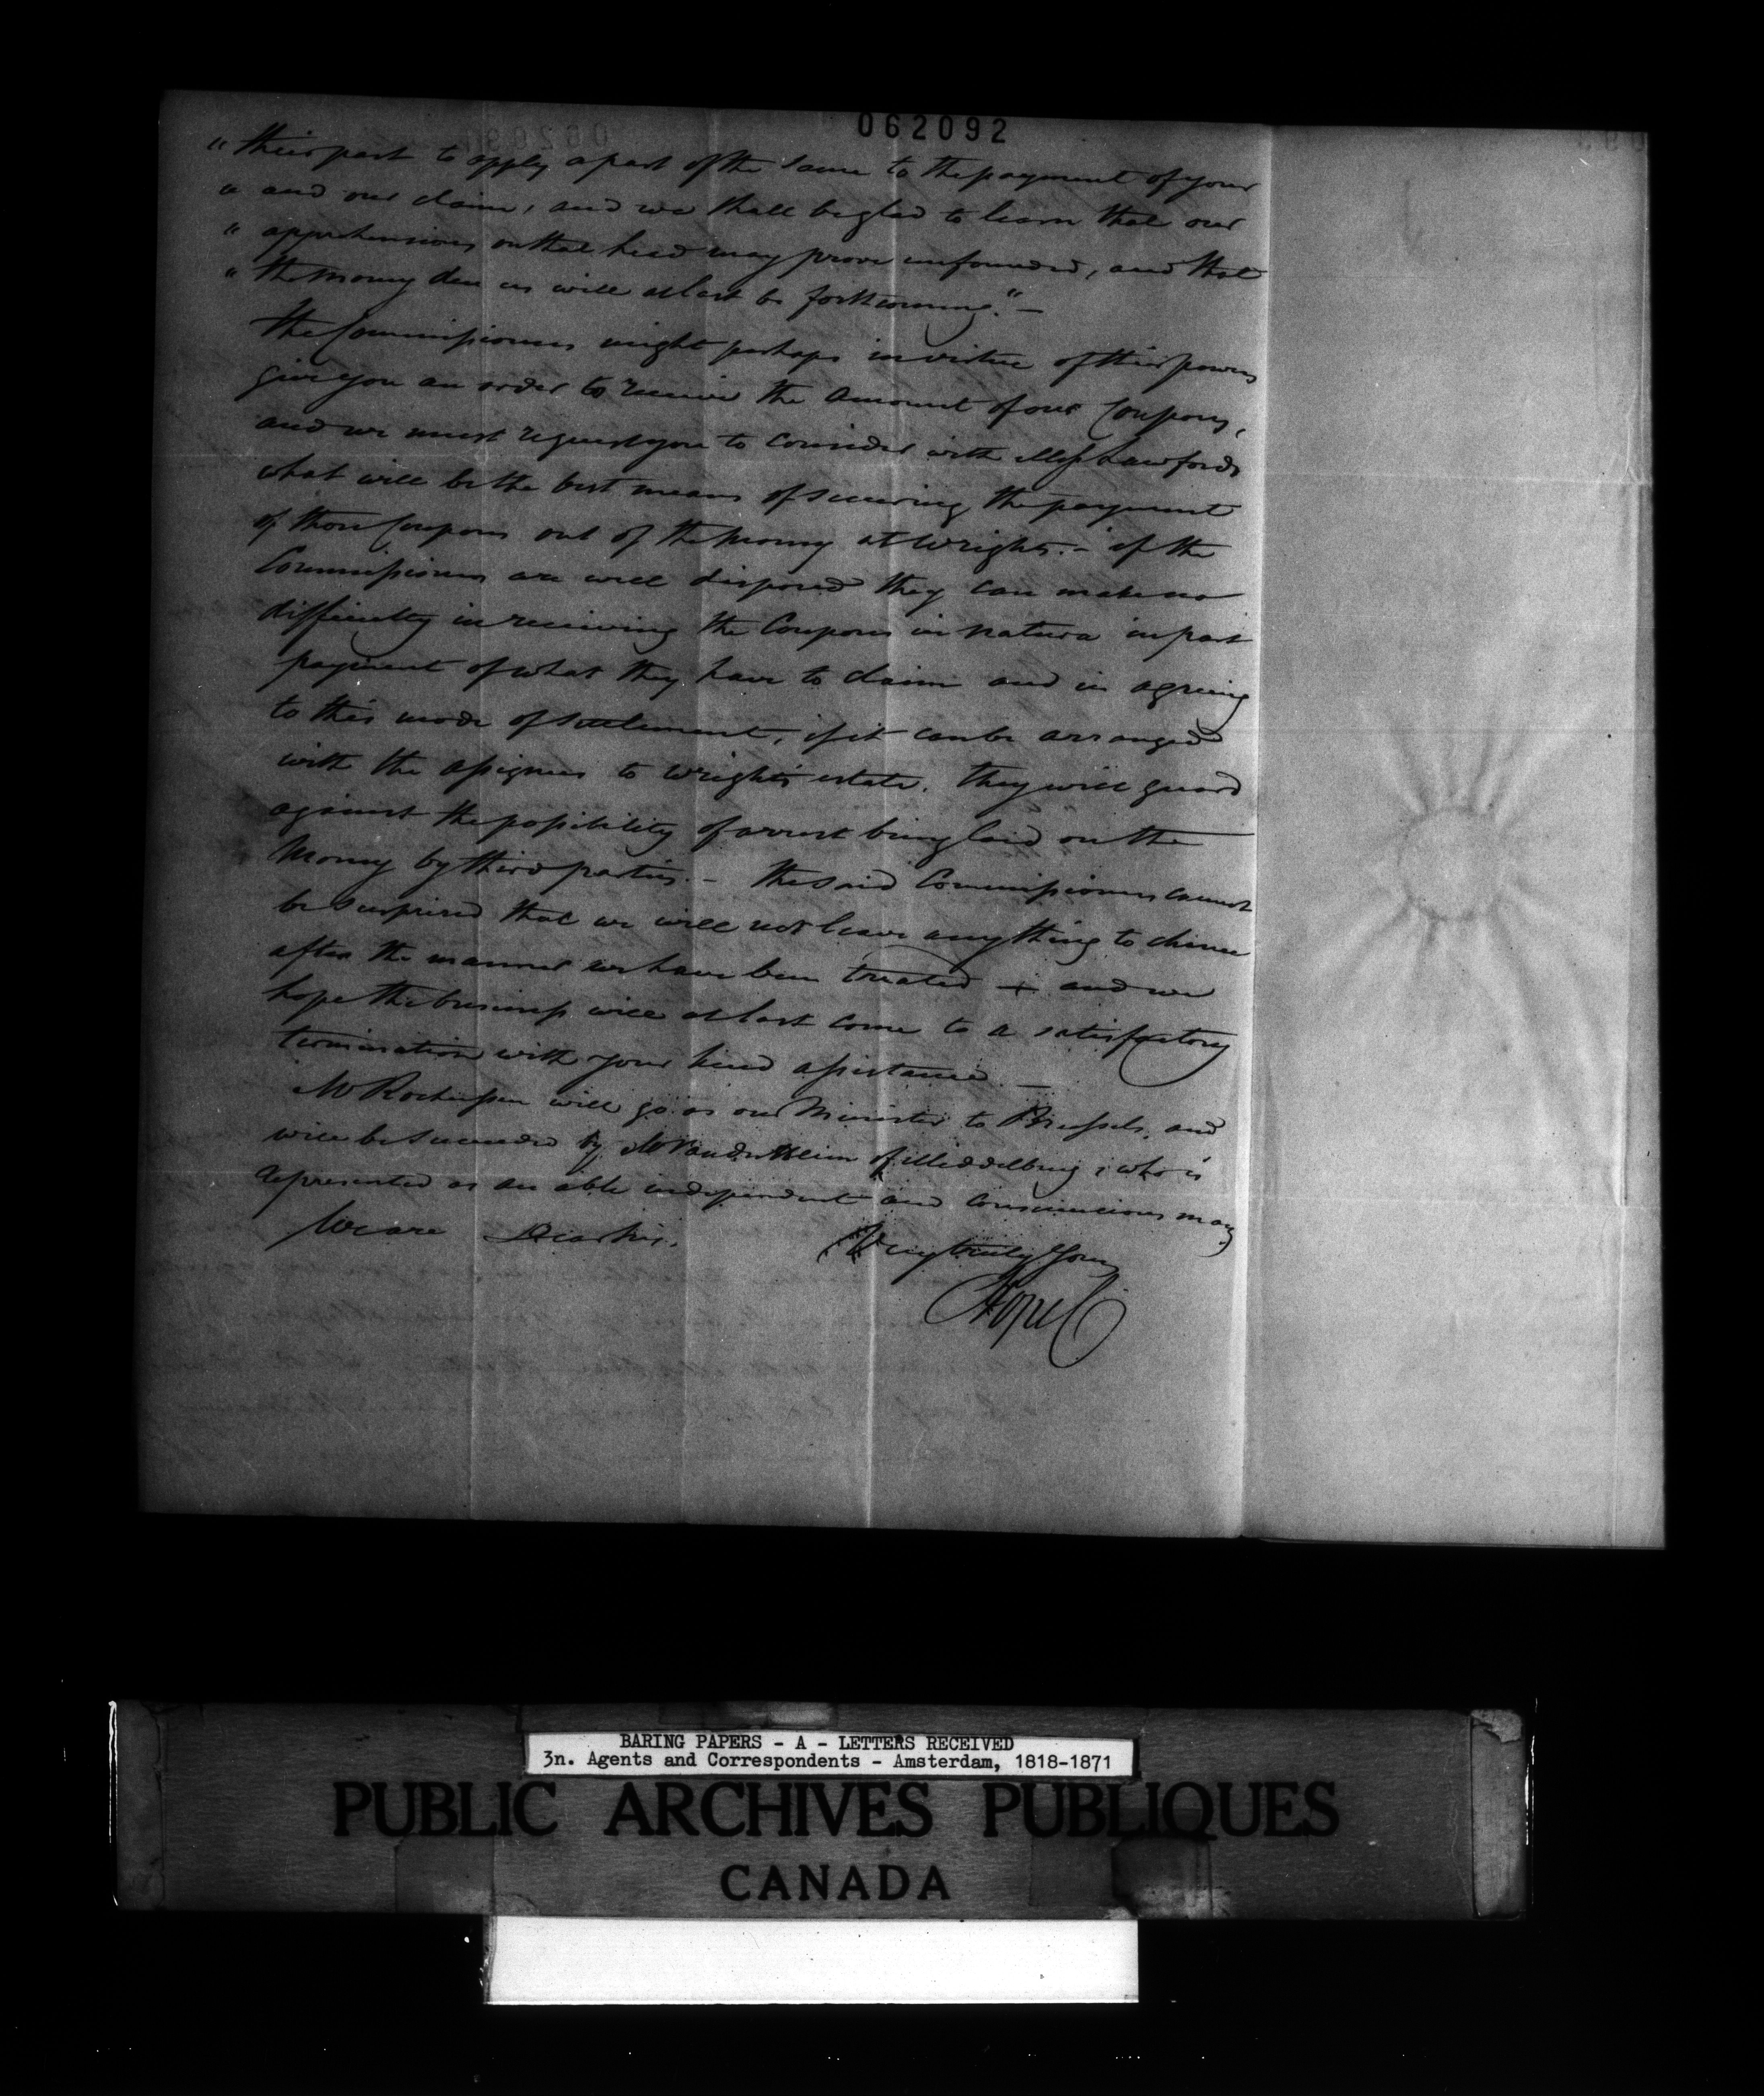 062092
" their part to apply a part of the same to the payment of your
" and our claim, and we shall be glad to learn that our
" apprehensions on that head may prove unfounded, and that
" the money due us will at last be forthcoming." —
The Commissioners might perhaps in virtue of their powers
give you an order to receive the amount of our Coupons,
and we must request you to consider with Messrs Lawfords
what will be the best means of securing the payment
of those Coupons out of the money at Wrights. — if the
Commissioners are well disposed they can make no
difficulty in receiving the Coupons in natura in part
payment of what they have to claim and in agreeing
to this mode of settlement, if it can be arranged
with the assignees to Wright's estate, they will guard
against the possibility of arrest being laid on the
Money by third parties. — The said Commissioners cannot
be surprised that we will not leave anything to chance
after the manner we have been treated + and we
hope the business will at last come to a satisfactory
termination with your kind assistance. —
Mr Rochussen will go as our Minister to Brussels, and
will be succeeded by Mr Vander Heim of Middelburg, who is
represented as an able independent and consciencious man
We are Dear Sirs,
Very truly Yours
Hope C
BARING PAPERS - A - LETTERS RECEIVED
3n. Agents and Correspondents - Amsterdam, 1818-1871
PUBLIC ARCHIVES PUBLIQUES
CANADA